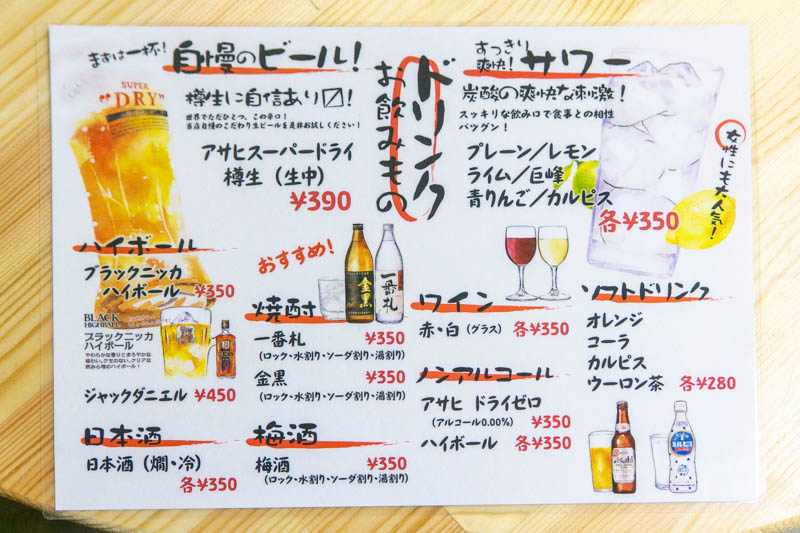 まずは一杯!
自慢のビール!
SUPER
"DRY"
樽生に自信あり〼!
世界でただひとつ、この辛口!
当店自慢のこだわり生ビールを是非お試しください!
アサヒスーパードライ
樽生(生中)
¥390
ドリンク
お飲みもの
すっきり
爽快!
サワー
炭酸の爽快な刺激!
スッキリな飲み口で食事との相性
バツグン!
プレーン/レモン
ライム/巨峰
青りんご/カルピス
各¥350
女性にも大人気!
ハイボール
ブラックニッカ
ハイボール ¥350
BLACK
HIGHBALL
ブラックニッカ
ハイボール
やわらかな香りとまろやかな
味わい。クセのない、クリアな
飲み心地のハイボール!
ジャックダニエル ¥450
おすすめ!
金黒
一番札
焼酎
一番札 ¥350
(ロック・水割り・ソーダ割り・湯割り)
金黒 ¥350
(ロック・水割り・ソーダ割り・湯割り)
ワイン
赤・白(グラス) 各¥350
ノンアルコール
アサヒ ドライゼロ
(アルコール0.00%) ¥350
ハイボール 各¥350
ソフトドリンク
オレンジ
コーラ
カルピス
ウーロン茶 各¥280
日本酒
日本酒(燗・冷)
各¥350
梅酒
梅酒 ¥350
(ロック・水割り・ソーダ割り・湯割り)
カルピス